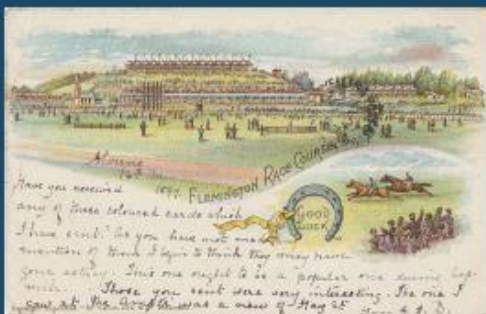 FLEMINGTON RACE COURSE
GOOD
LUCK
Have you received
any of these coloured cards which
I have sent? As you have not made
mention of them I begin to think they may have
gone astray. This one ought to be a popular one during
Those you sent were very interesting. The one I
saw at the was a view of May 25